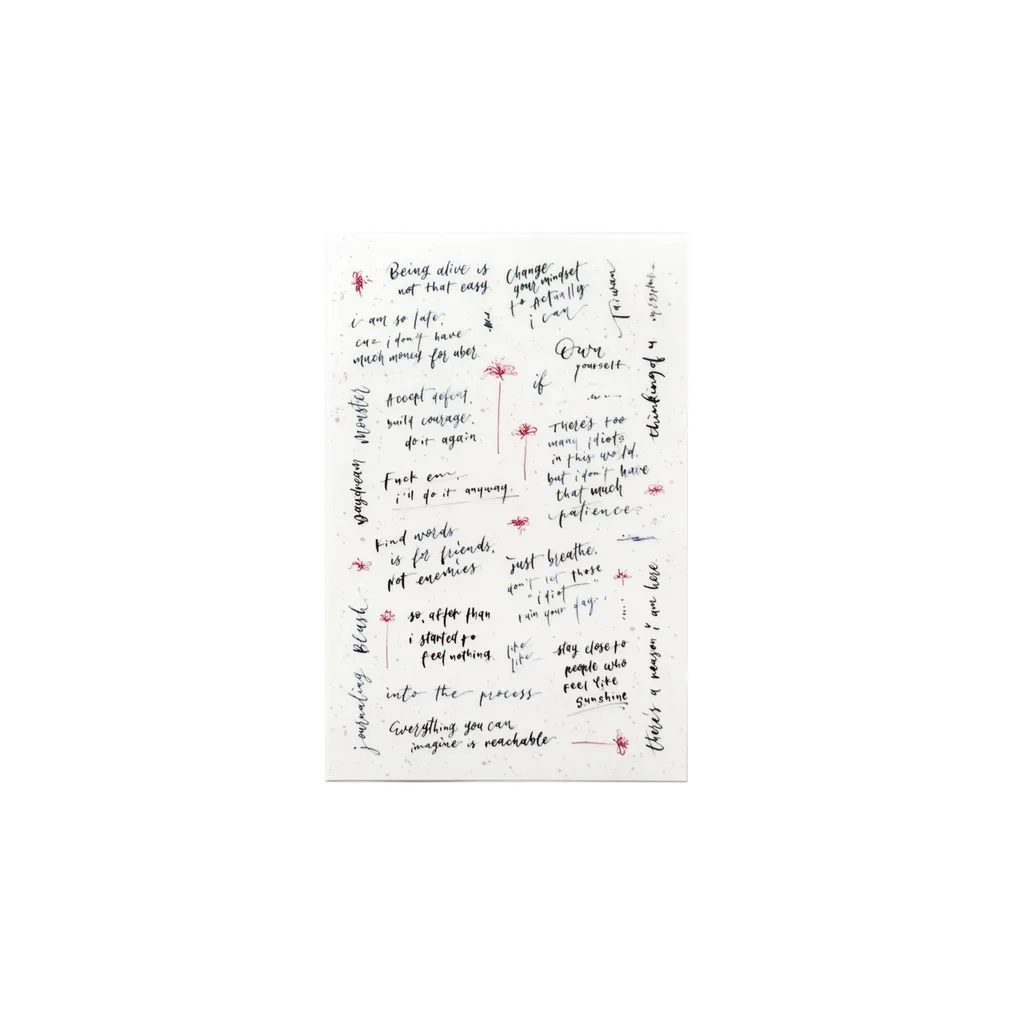 Being alive is
not that easy
Change
your mindset
to Actually
i can
Taiwan
i am so late.
cuz i don't have
much money for uber.
Own
yourself
if
thinking of u
Accept defeat.
build courage.
do it again.
daydream Monster
There's too
many idiots
in this world.
but i don't have
that much
patience.
Fuck em.
i'll do it anyway.
Kind words
is for friends.
Not enemies
Just breathe.
don't let those
"idiot"
ruin your day.
so, after than
i started to
feel nothing.
like
like
stay close to
people who
feel like
sunshine
there's a reason i am here.
journaling Blush
into the process
Everything you can
imagine is reachable